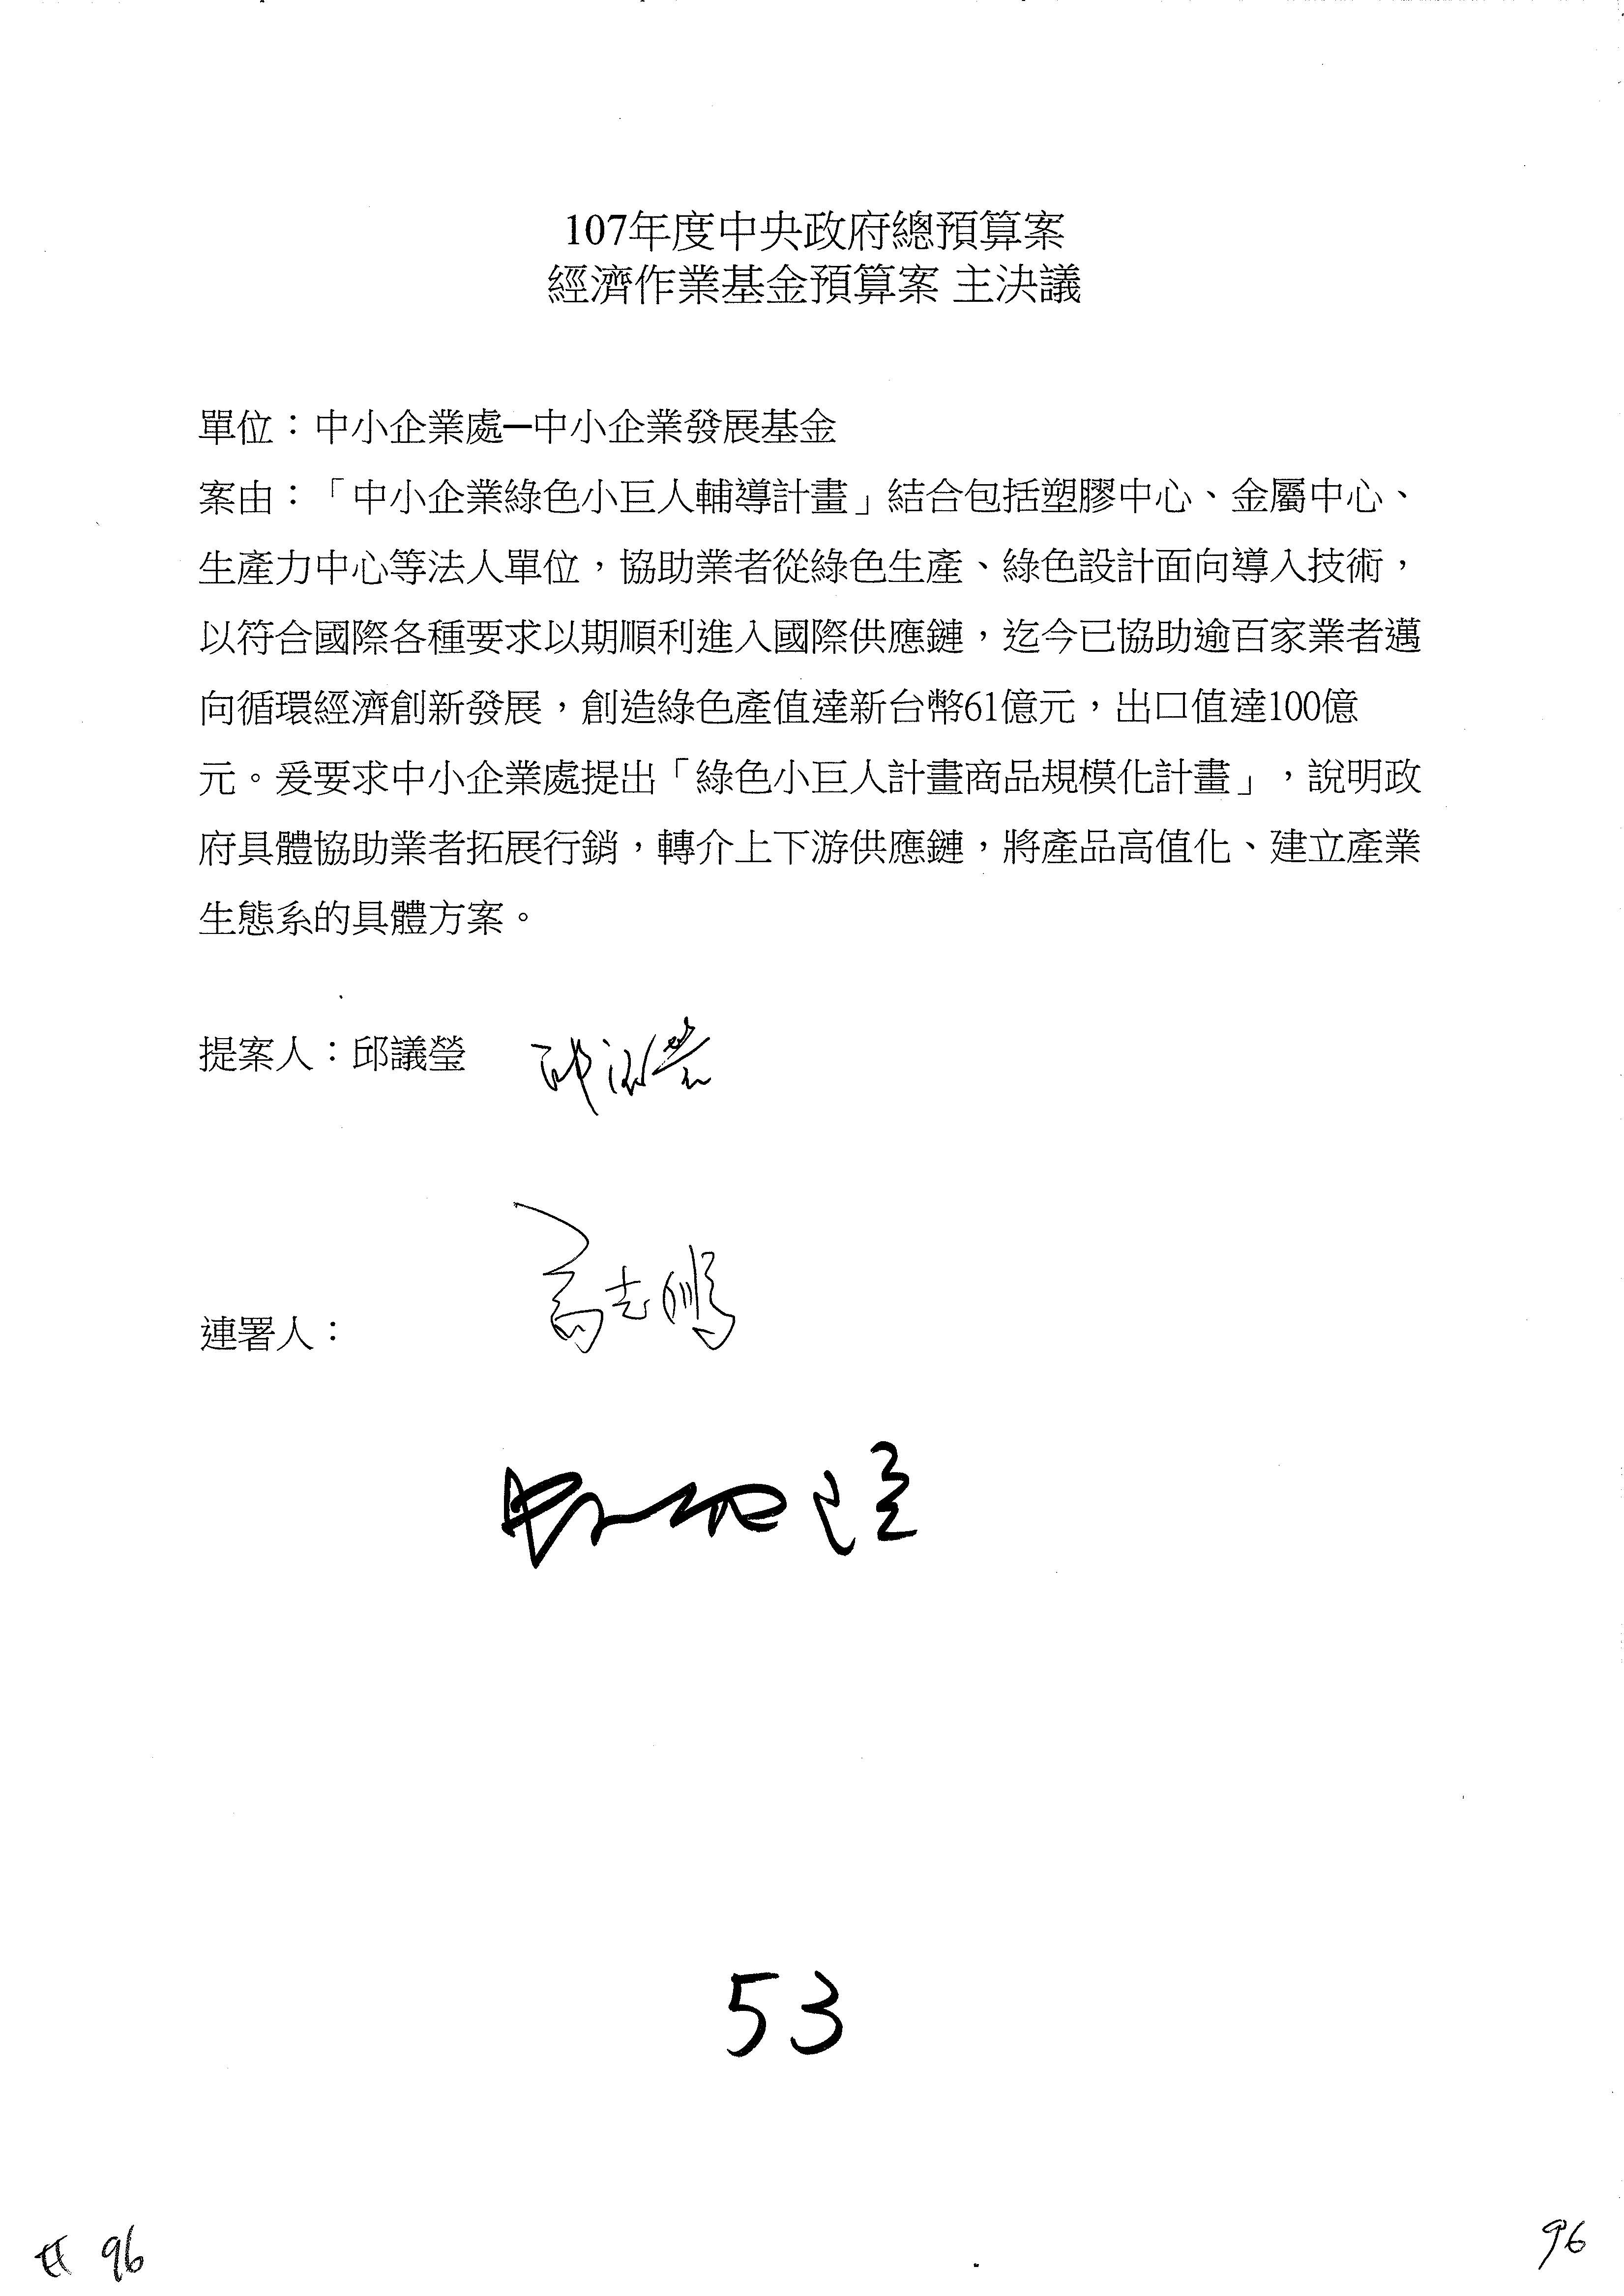 107年度中央政府總預算案
經濟作業基金預算案 主決議
單位：中小企業處─中小企業發展基金
案由：「中小企業綠色小巨人輔導計畫」結合包括塑膠中心、金屬中心、
生產力中心等法人單位，協助業者從綠色生產、綠色設計面向導入技術，
以符合國際各種要求以期順利進入國際供應鏈，迄今已協助逾百家業者邁
向循環經濟創新發展，創造綠色產值達新台幣61億元，出口值達100億
元。爰要求中小企業處提出「綠色小巨人計畫商品規模化計畫」，說明政
府具體協助業者拓展行銷，轉介上下游供應鏈，將產品高值化、建立產業
生態系的具體方案。
提案人：邱議瑩 邱議瑩
高志鵬
連署人：
53
96
96